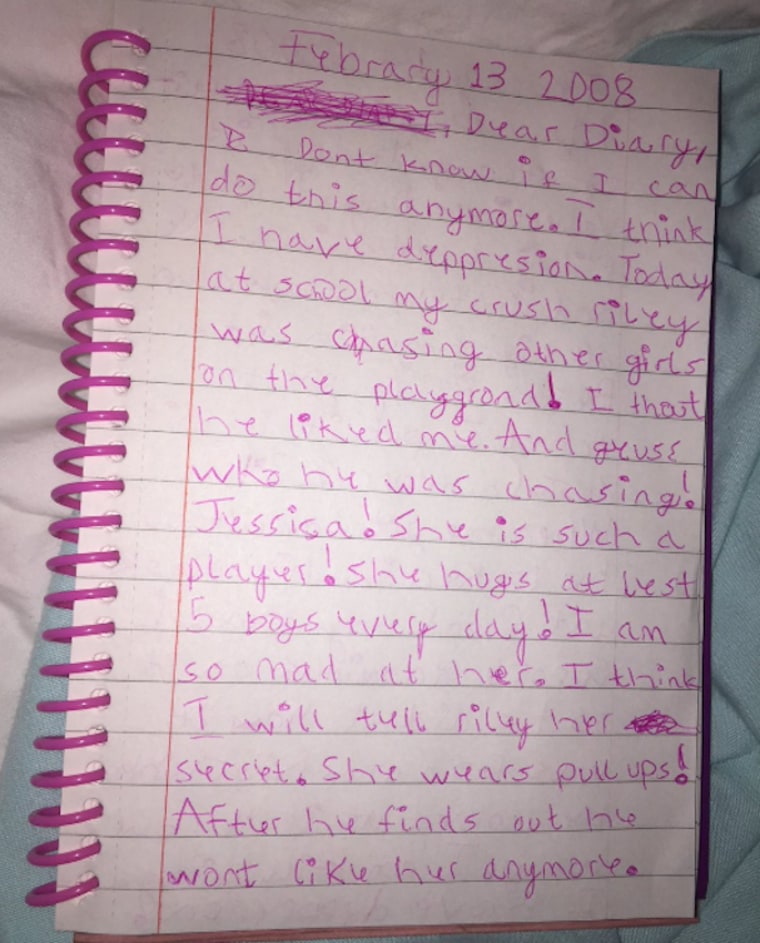 Febrary 13 2008
Dear Diary,
I Dont know if I can
do this anymore. I think
I have deppresion. Today
at scool my crush riley
was chasing other girls
on the playgrond! I thot
he liked me. And geuss
who he was chasing!
Jessica! She is such a
player! She hugs at lest
5 boys every day! I am
so mad at her. I think
I will tell riley her
secret. She wears pull ups!
After he finds out he
wont like her anymore.